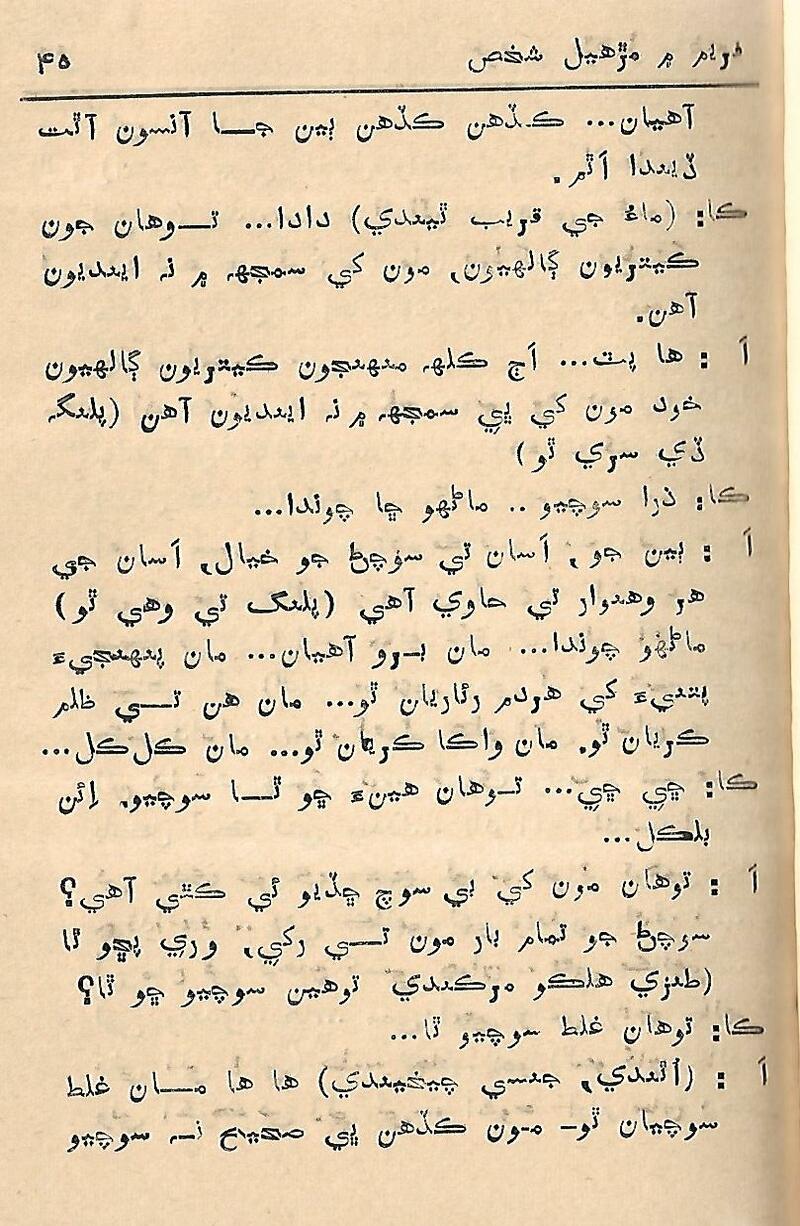 فريم ۾ مڙهيل شخص ۴۵
آهيان... ڪڏهن ڪڏهن ٻين جا آنسون آڻت
ڏيندا اَٿم.
ڪا: (ماءُ جي قريب ٿيندي) دادا... توهان جون
ڪيتريون ڳالهيون, مون کي سمجهه ۾ نه اينديون
آهن.
اَ : ها پٽ... اَڄ ڪلهه منهنجون ڪيتريون ڳالهيون
خود مون کي ڀي سمجهه ۾ نه اينديون آهن (پلنگہ
ڏي سري ٿو)
ڪا: ذرا سوچيو .. ماڻهو ڇا چوندا...
اَ : ٻين جو, اَسان تي سوچڻ جو خيال, اَسان جي
هر وهنوار تي حاوي آهي (پلنگ تي وهي ٿو)
ماڻهو چوندا... مان بـرو آهيان... مان پنهنجيءَ
پتنيءَ کي هردم رئاريان ٿو... مان هن تي ظلم
ڪريان ٿو. مان واڪا ڪريان ٿو... مان ڪل ڪل...
ڪا: ڇي ڇي... توهان هينءَ ڇو ٿا سوچيو. اِئن
بلڪل...
اَ : توهان مون کي ٻي سوچ ڇڏيو ئي ڪٿي آهي؟
سوچڻ جو تمام بار مون تي رکي, وري پڇو ٿا
(طنزي هلڪو مرڪندي توهين سوچيو ڇو ٿا؟
ڪا: توهان غلط سوچيو ٿا...
اَ : (اُٿندي, جنسي چيخيندي) ها ها مان غلط
سوچيان ٿو- مون ڪڏهن ڀي صحيح نہ سوچيو